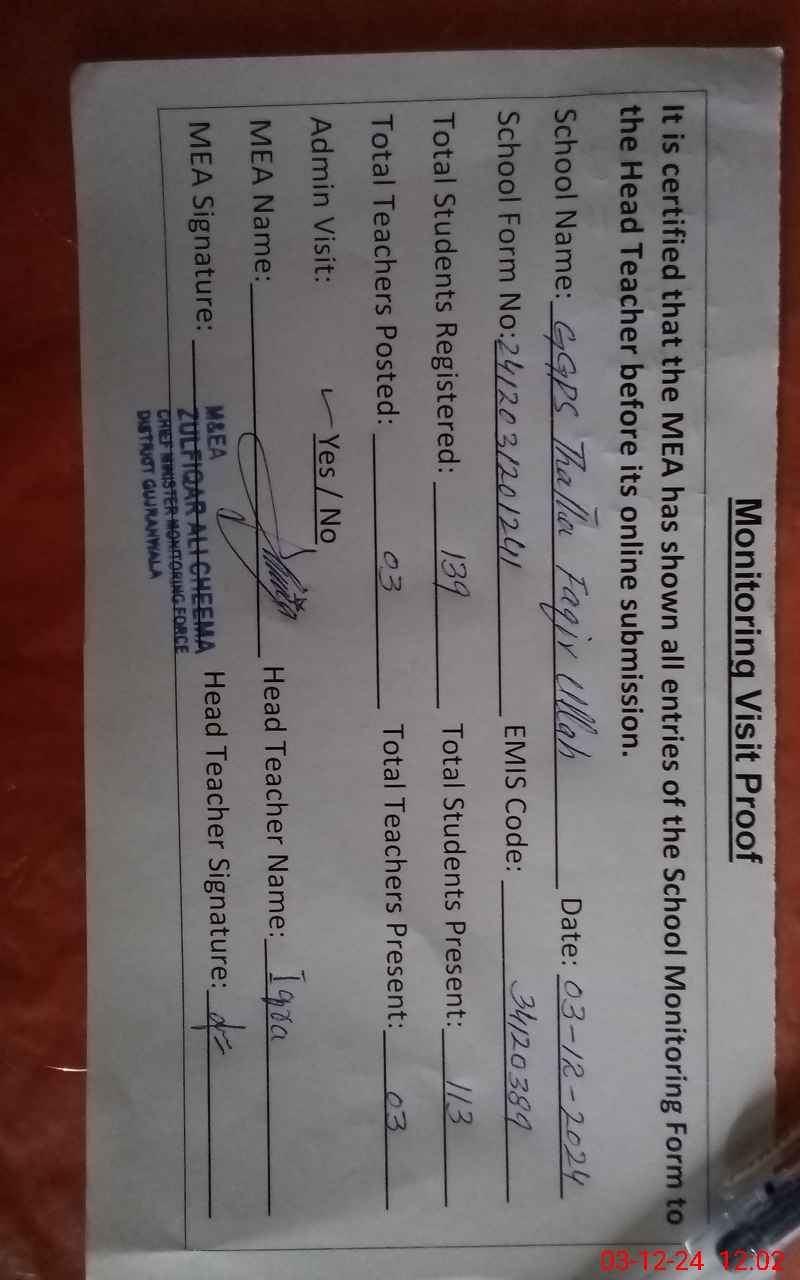 Monitoring Visit Proof
It is certified that the MEA has shown all entries of the School Monitoring Form to
the Head Teacher before its online submission.
School Name: GGPS Thatta Faqir Ullah Date: 03-12-2024
School Form No: 2412031201241 EMIS Code: 34120389
Total Students Registered: 139 Total Students Present: 113
Total Teachers Posted: 03 Total Teachers Present: 03
Admin Visit: ✓ Yes / No
MEA Name: Head Teacher Name: Iqra
MEA Signature: Head Teacher Signature:
M&EA
ZULFIQAR ALI CHEEMA
CHIEF MINISTER MONITORING FORCE
DISTRICT GUJRANWALA
03-12-24 12:02